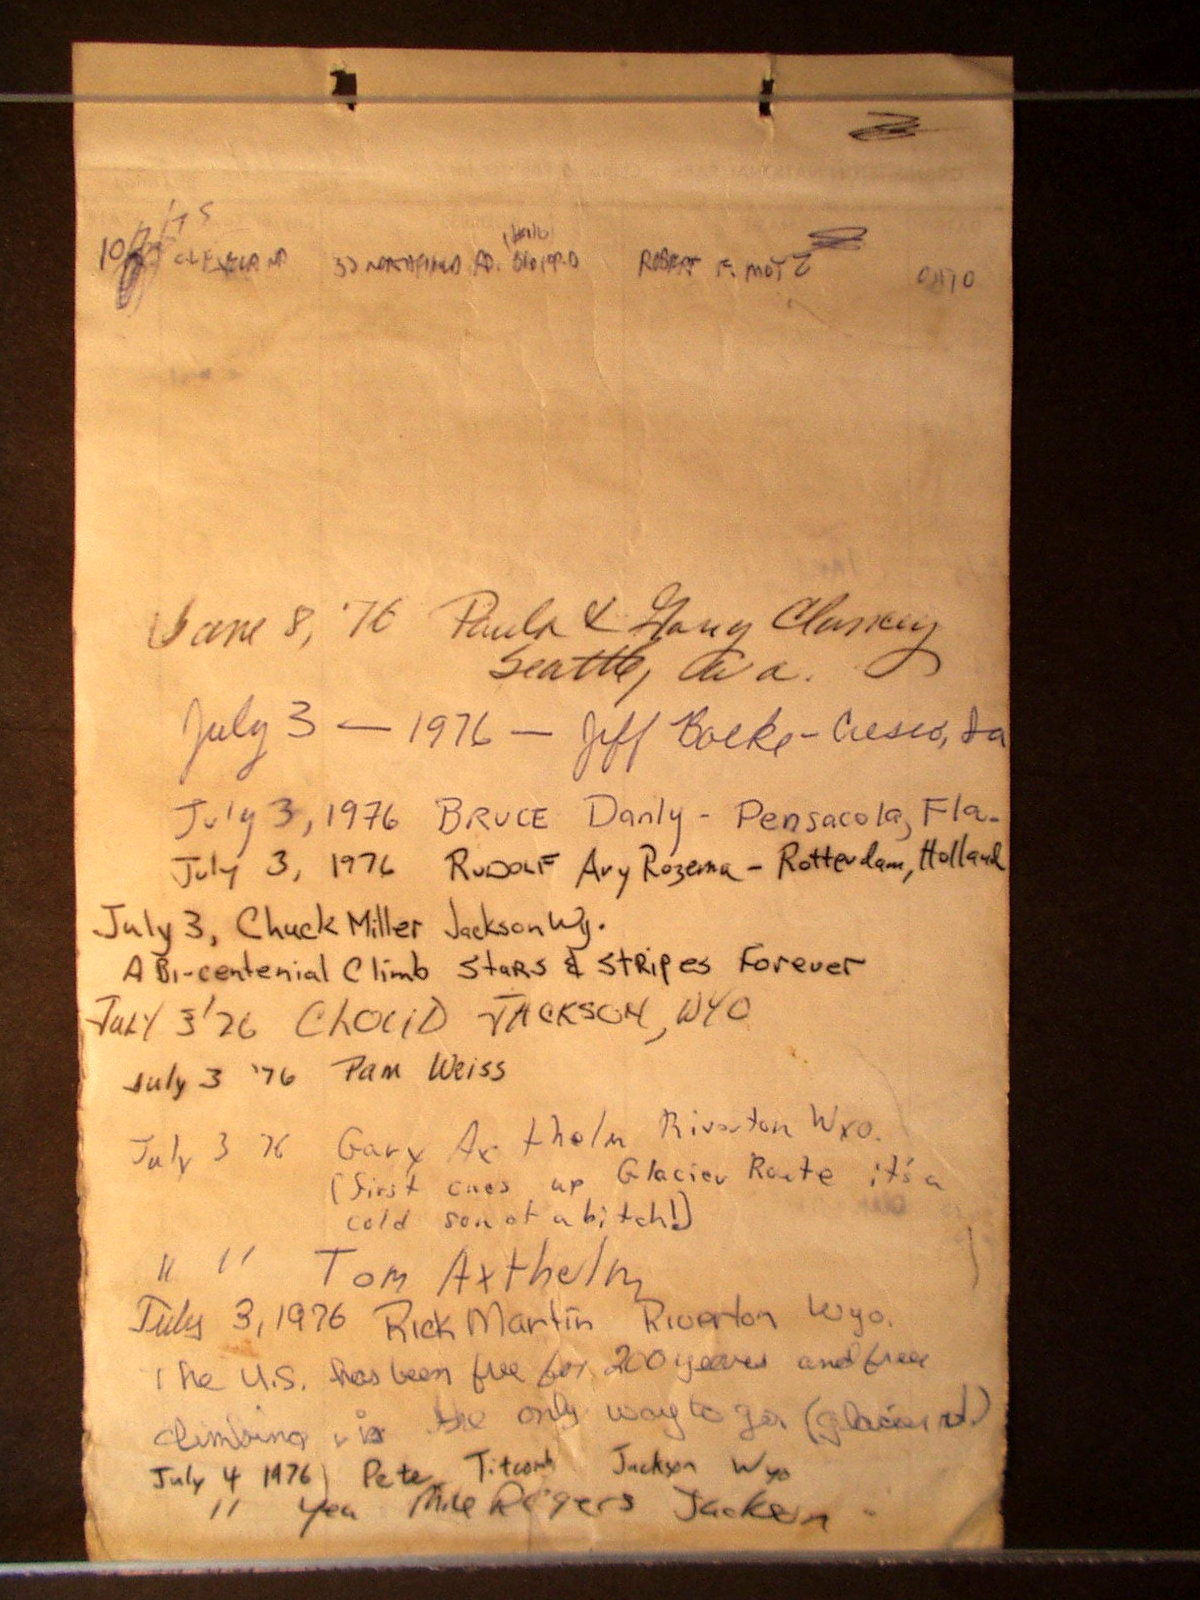 10/7/75 CLEVELAND 30 NORTHFIELD RD. OHIO ROBERT F. MOTZ
June 8, '76 Paula & Gary Clancey
Seattle, Wa.
July 3 — 1976 — Jeff Boeke - Cresco, Ia
July 3, 1976 BRUCE Danly - Pensacola, Fla.
July 3, 1976 RUDOLF Ary Rozema - Rotterdam, Holland
July 3, Chuck Miller Jackson Wy.
A Bi-centenial Climb Stars & Stripes Forever
JULY 3 '76 JACKSON, WYO
July 3 '76 Pam Weiss
July 3 76 Gary Axthelm Riverton Wyo.
(first ones up Glacier Route it's a
cold son of a bitch!)
" " Tom Axthelm
July 3, 1976 Rick Martin Riverton Wyo.
The U.S. has been free for 200 years and free
climbing is the only way to go (glacier rt.)
July 4 1976 Pete Titcomb Jackson Wyo
" Yea Mike Rogers Jackson